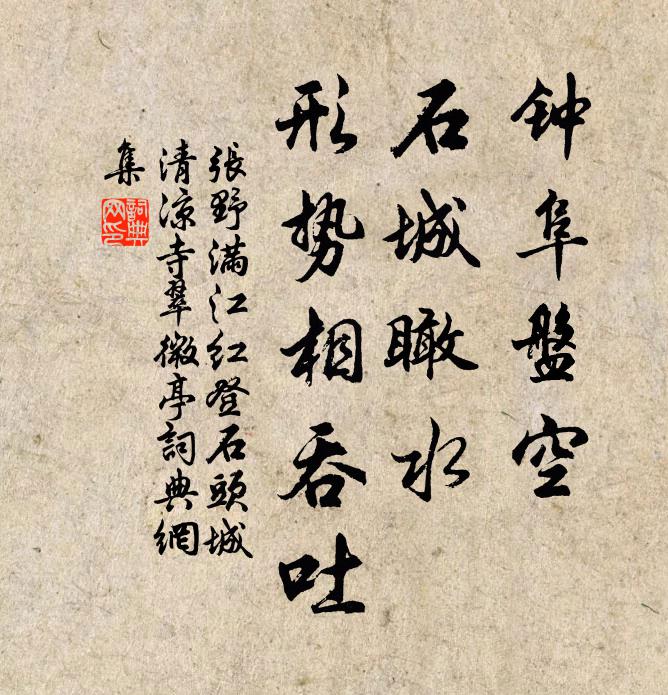 钟阜盤空
石城瞰水
形势相吞吐
張野满江红登石頭城
清凉寺翠微亭詞典網
集
詞典
网印